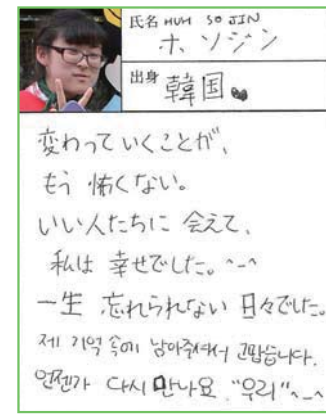 氏名 HUH SO JIN
ホ ソジン
出身 韓国
変わっていくことが、
もう 怖くない。
いい人たちに 会えて、
私は 幸せでした。^-^
一生 忘れられない 日々でした。
제 기억 속에 남아주셔서 고맙습니다.
언젠가 다시 만나요. "우리" ^_^